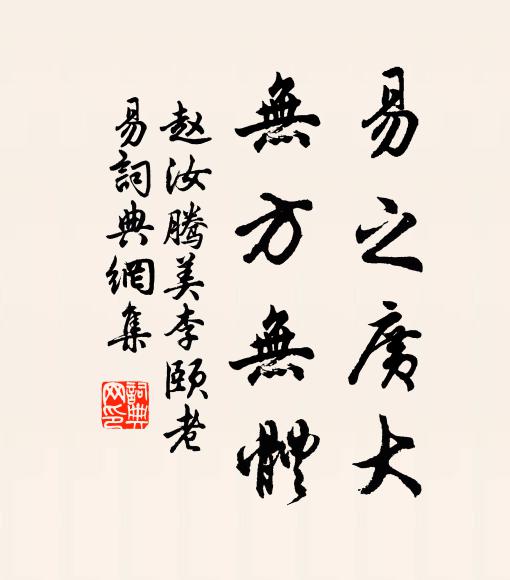 易之廣大
無方無體
赵汝騰美李頤老
易詞典網集
詞典网印